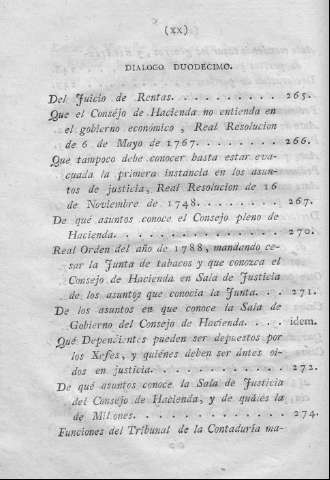 (XX)
DIALOGO DUODECIMO.
Del Juicio de Rentas. . . . . . . . . . . 265.
Que el Conséjo de Hacienda no entienda en
el gobierno económico, Real Resolucion
de 6 de Mayo de 1767. . . . . . . . . 266.
Que tampoco debe conocer hasta estar eva-
cuada la primera instancia en los asun-
tos de justicia, Real Resolucion de 16
de Noviembre de 1748. . . . . . . . . 267.
De qué asuntos conoce el Consejo pleno de
Hacienda. . . . . . . . . . . . . . . . 270.
Real Orden del año de 1788, mandando ce-
sar la Junta de tabacos y que conozca el
Consejo de Hacienda en Sala de Justicia
de los asuntos que conocia la Junta. . . 271.
De los asuntos en que conoce la Sala de
Gobierno del Consejo de Hacienda. . . . idem.
Qué Dependientes pueden ser depuestos por
los Xefes, y quiénes deben ser ántes oi-
dos en justicia. . . . . . . . . . . . . 272.
De qué asuntos conoce la Sala de Justicia
del Consejo de Hacienda, y de quáles la
de Millones. . . . . . . . . . . . . . . 274.
Funciones del Tribunal de la Contaduría ma-